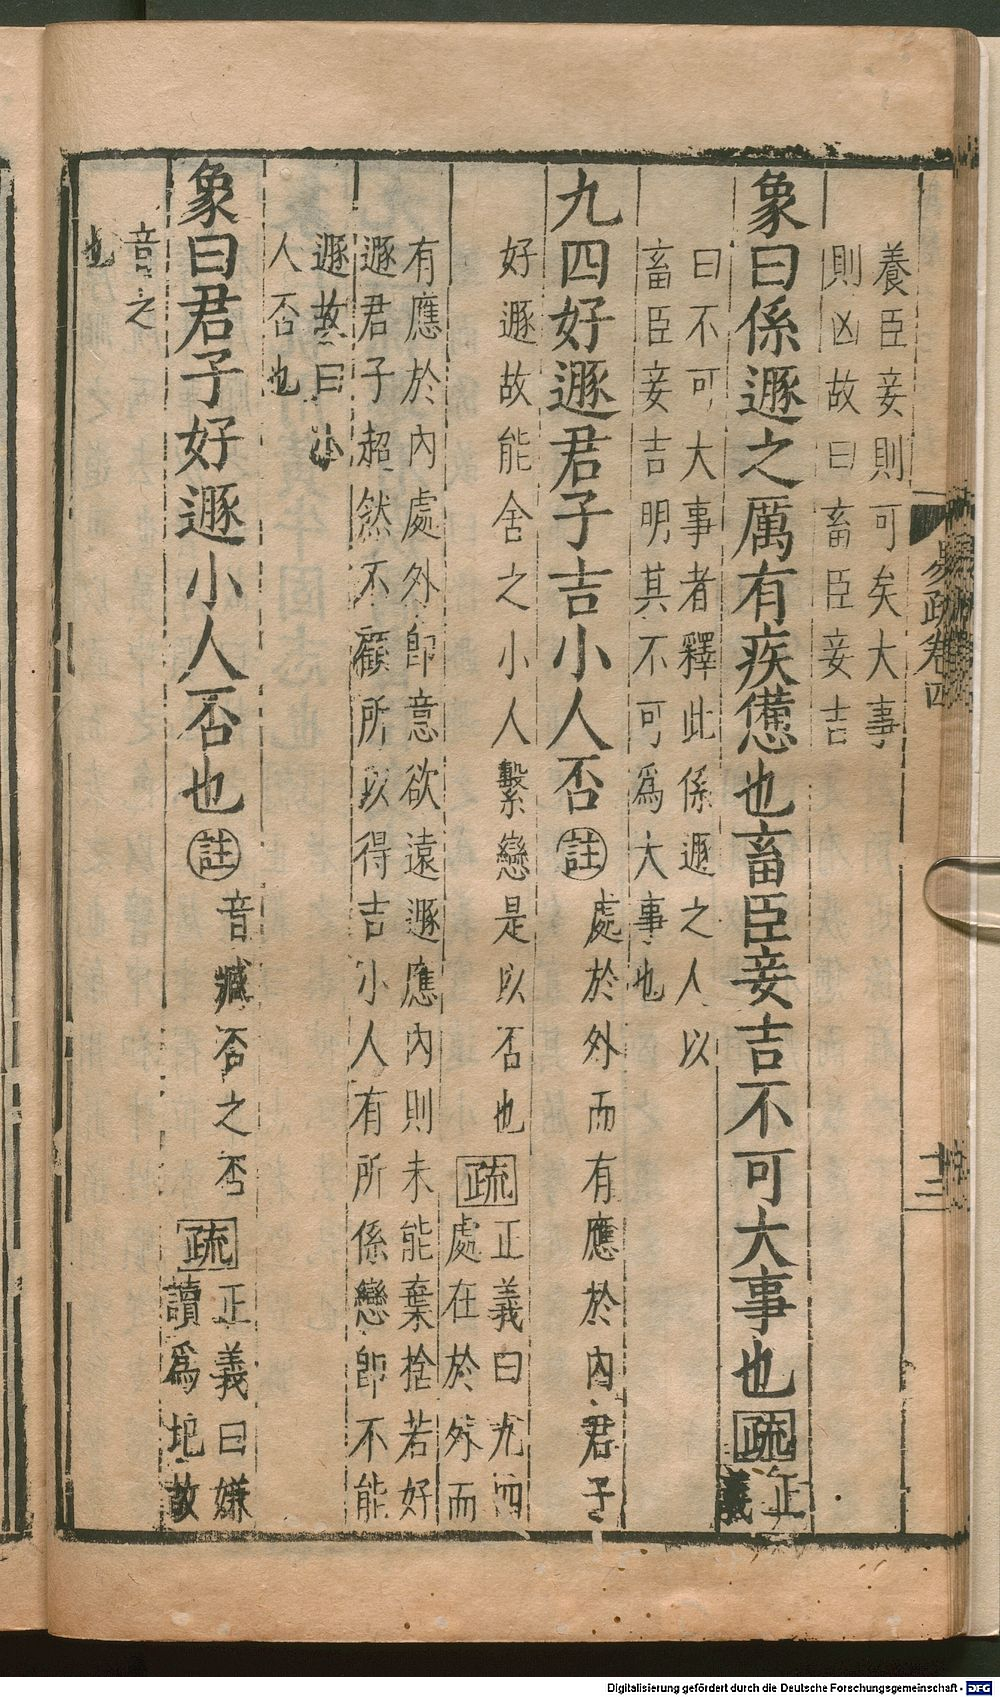 易疏卷四
十三
養臣妾則可矣大事
則凶故曰畜臣妾吉
象曰係遯之厲有疾憊也畜臣妾吉不可大事也 疏 正
義
曰不可大事者釋此係遯之人以
畜臣妾吉明其不可爲大事也
九四好遯君子吉小人否 註 處於外而有應於內君子
好遯故能舍之小人繫戀是以否也 疏 正義曰九四
處在於外而
有應於內處外卽意欲遠遯應內則未能棄捨若好
遯君子超然不顧所以得吉小人有所係戀卽不能
遯故曰小
人否也
象曰君子好遯小人否也 註 音臧否之否 疏 正義曰嫌
讀爲圯故
音之
也
Digitalisierung gefördert durch die Deutsche Forschungsgemeinschaft - DFG